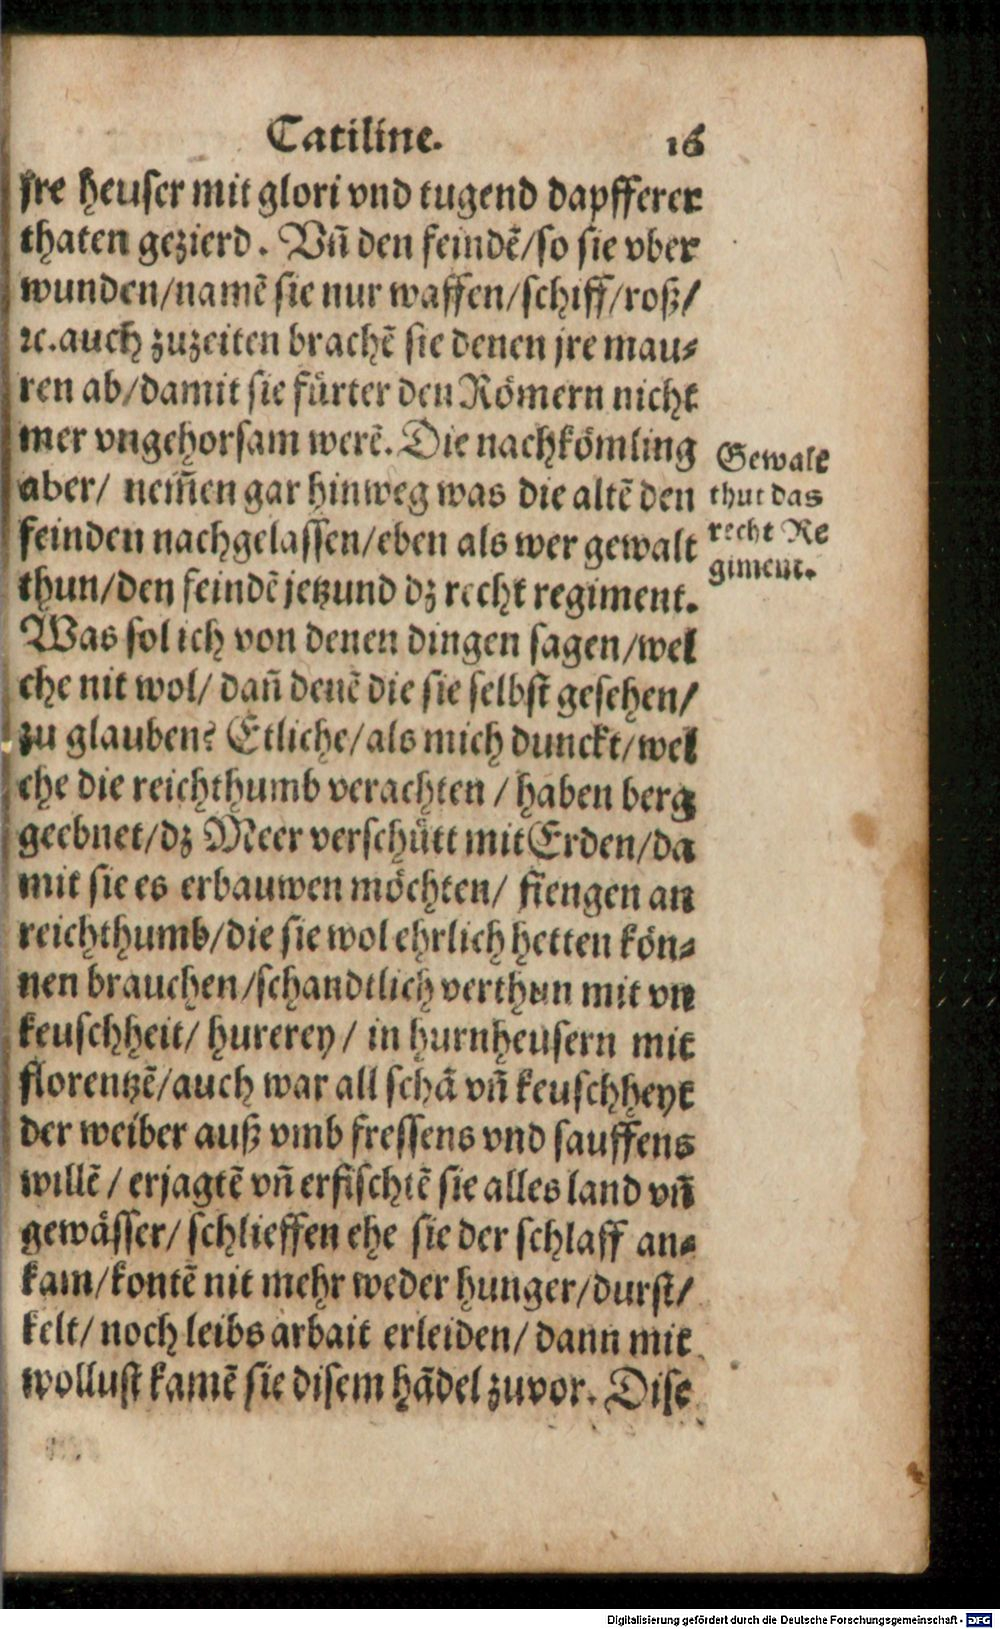 Catiline. 16
jre heuser mit glori vnd tugend dapfferer
thaten gezierd. Vñ den feindẽ/so sie vber
wunden/namẽ sie nur waffen/schiff/roß/
ꝛc.auch zuzeiten brachẽ sie denen jre mau⸗
ren ab/damit sie fürter den Römern nicht
mer vngehorsam werẽ. Die nachkömling
aber/ nem̃en gar hinweg was die altẽ den
feinden nachgelassen/eben als wer gewalt
thun/den feindẽ jetzund dz recht regiment.
Gewalt
thut das
recht Re
giment.
Was sol ich von denen dingen sagen/wel
che nit wol/ dañ denẽ die sie selbst gesehen/
zu glauben? Etliche/als mich dunckt/wel
che die reichthumb verachten / haben berg
geebnet/dz Meer verschütt mit Erden/da
mit sie es erbauwen möchten/ fiengen an
reichthumb/die sie wol ehrlich hetten kön⸗
nen brauchen/schandtlich verthun mit vn
keuschheit/ hurerey / in hurnheusern mit
florentzẽ/auch war all schã vñ keuschheyt
der weiber auß vmb fressens vnd sauffens
willẽ / erjagtẽ vñ erfischtẽ sie alles land vñ
gewässer/ schlieffen ehe sie der schlaff an⸗
kam/kontẽ nit mehr weder hunger/durst/
kelt/ noch leibs arbait erleiden/ dann mit
wollust kamẽ sie disem hãdel zuvor. Dise
Digitalisierung gefördert durch die Deutsche Forschungsgemeinschaft - DFG